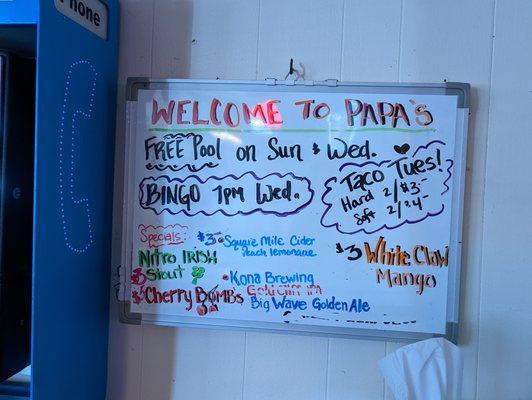 Phone
WELCOME TO PAPA'S
FREE Pool on Sun & Wed.
BINGO 7PM Wed.
Taco Tues!
Hard 2/$3-
Soft 2/$4-
Specials
Nitro IRISH
$3 Stout
$3 Cherry Bombs
$3 • Square Mile Cider
Peach Lemonade
• Kona Brewing
Gold Cliff IPA
Big Wave Golden Ale
$3 White Claw
Mango